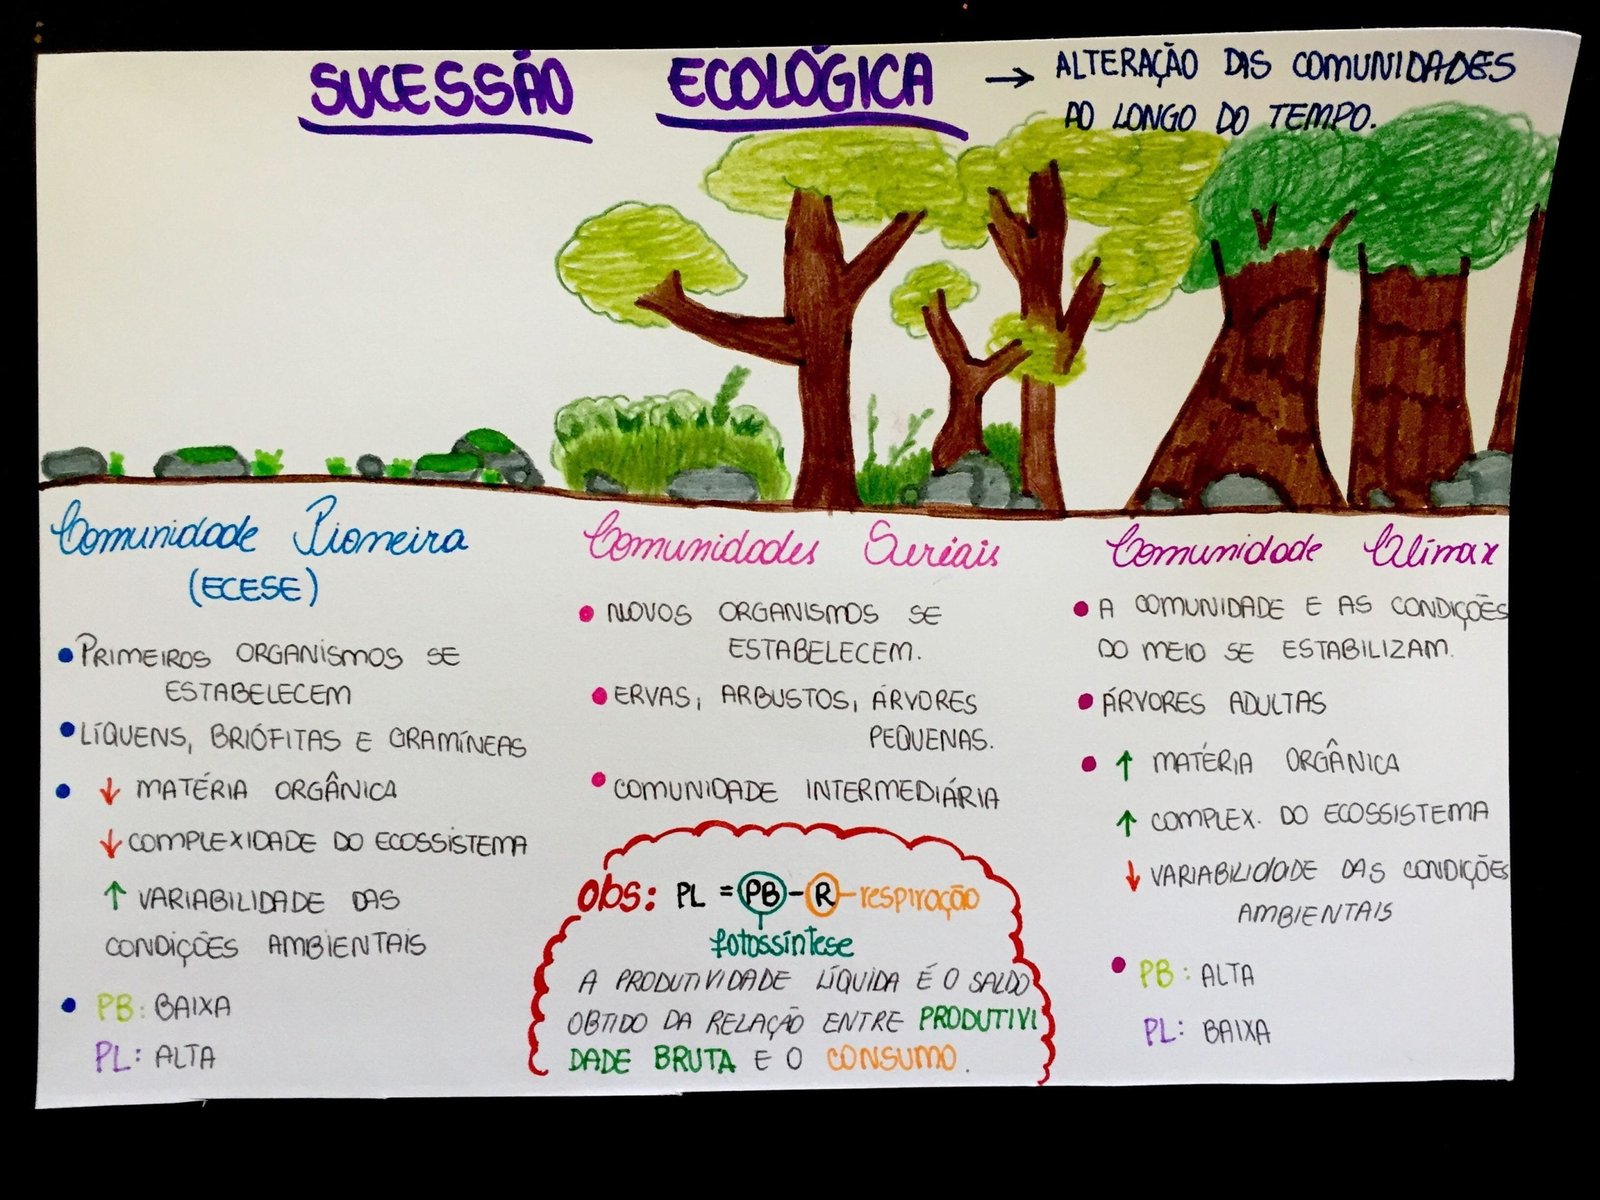 SUCESSÃO ECOLÓGICA → ALTERAÇÃO DAS COMUNIDADES
AO LONGO DO TEMPO.
Comunidade Pioneira
(ECESE)
• PRIMEIROS ORGANISMOS SE
ESTABELECEM
• LÍQUENS, BRIÓFITAS E GRAMÍNEAS
• ↓ MATÉRIA ORGÂNICA
↓ COMPLEXIDADE DO ECOSSISTEMA
↑ VARIABILIDADE DAS
CONDIÇÕES AMBIENTAIS
• PB: BAIXA
PL: ALTA
Comunidades Seriais
• NOVOS ORGANISMOS SE
ESTABELECEM.
• ERVAS, ARBUSTOS, ÁRVORES
PEQUENAS.
• COMUNIDADE INTERMEDIÁRIA
obs: PL = PB - R - respiração
fotossíntese
A PRODUTIVIDADE LÍQUIDA É O SALDO
OBTIDO DA RELAÇÃO ENTRE PRODUTIVI
DADE BRUTA E O CONSUMO.
Comunidade Clímax
• A COMUNIDADE E AS CONDIÇÕES
DO MEIO SE ESTABILIZAM.
• ÁRVORES ADULTAS
• ↑ MATÉRIA ORGÂNICA
↑ COMPLEX. DO ECOSSISTEMA
↓ VARIABILIDADE DAS CONDIÇÕES
AMBIENTAIS
• PB: ALTA
PL: BAIXA